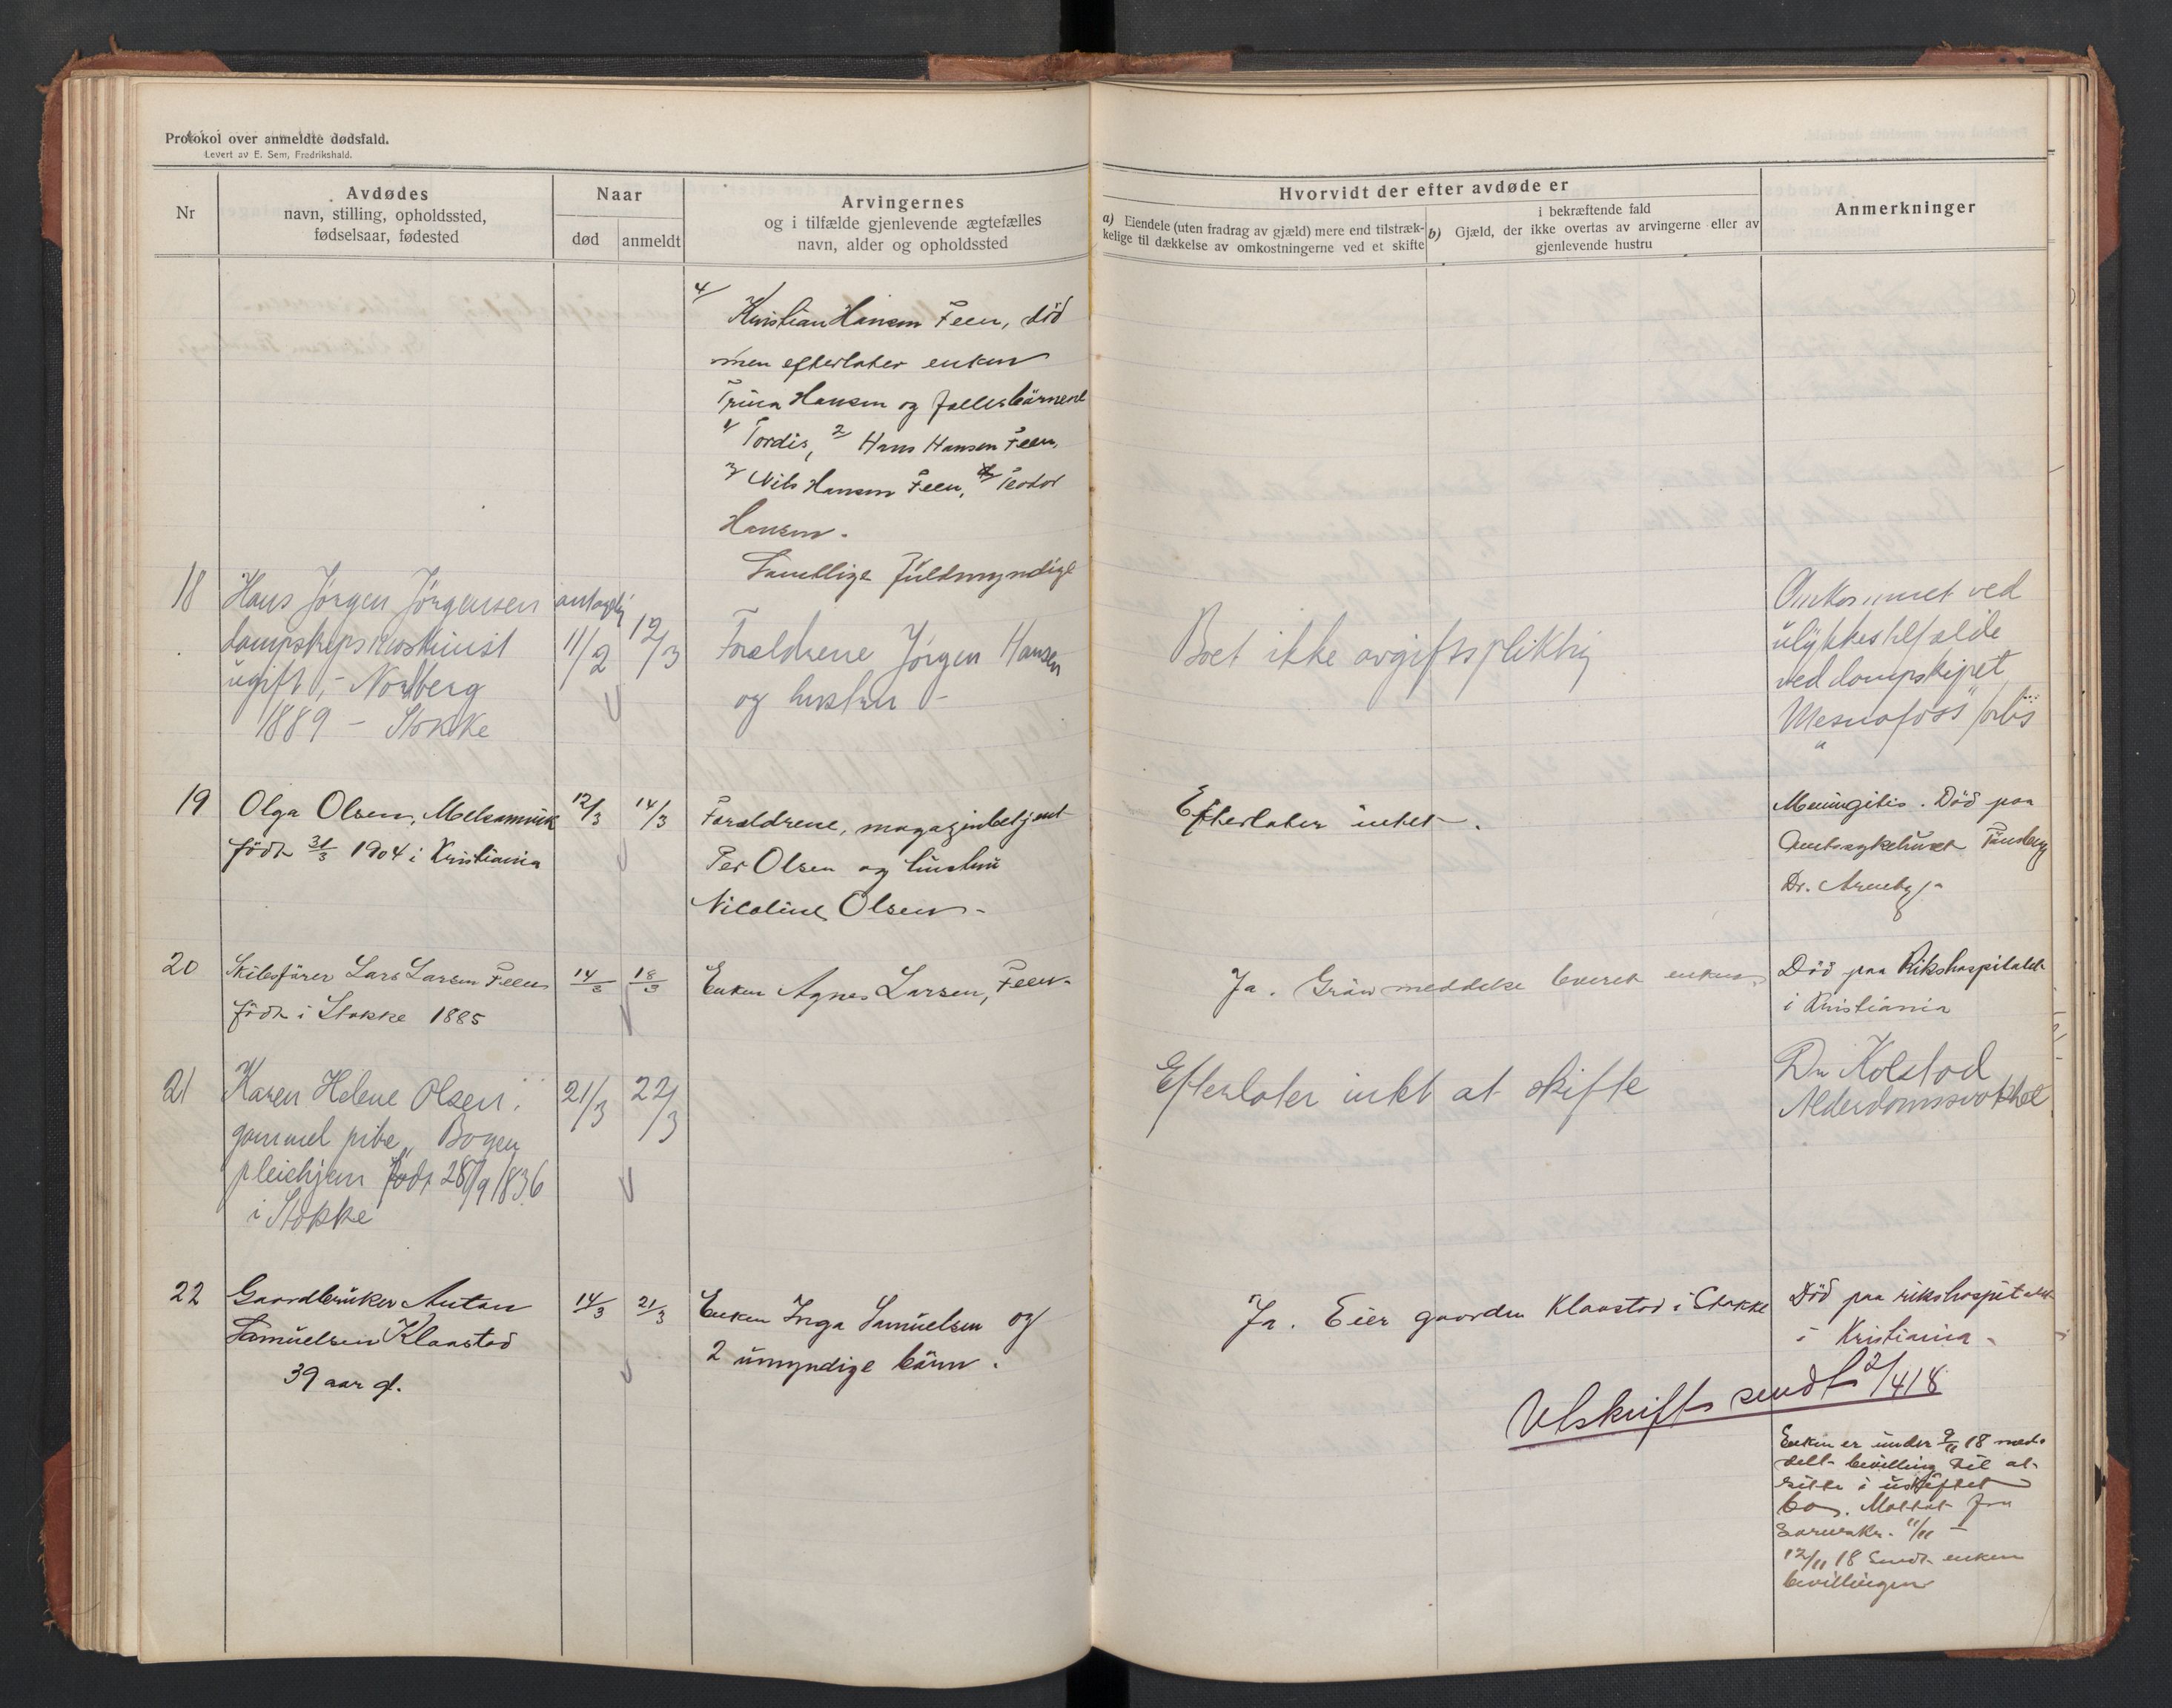 Protokol over anmeldte dødsfald.
Levert av E. Sem, Fredrikshald.
Nr
Avdødes
navn, stilling, opholdssted,
fødselsaar, fødested
Naar
død
anmeldt
Arvingernes
og i tilfælde gjenlevende ægtefælles
navn, alder og opholdssted
Hvorvidt der efter avdøde er
a) Eiendele (uten fradrag av gjæld) mere end tilstræk-
kelige til dækkelse av omkostningerne ved et skifte
i bekræftende fald
b) Gjæld, der ikke overtas av arvingerne eller av
gjenlevende hustru
Anmerkninger
4/
Kristian Hansen Feen, död
men efterlater enken
Trina Hansen og fællesbärnene
1/ Tordis, 2/ Hans Hansen Feen,
3/ Nils Hansen Feen, 4/ Teodor
Hansen.
Samtlige fuldmyndige
18
Hans Jörgen Jörgensen
dampskipsmaskinist
ugift, - Nordberg
1889 - Stokke
antagelig
11/2
12/3
Forældrene Jörgen Hansen
og hustru -
Boet ikke avgiftspliktig
Omkommet ved
ulykkestilfælde
ved dampskipet
"Mesnafoss" forlis
19
Olga Olsen, Melsomvik
födt 31/3 1904 i Kristiania
12/3
14/3
Forældrene, magazinbetjent
Per Olsen og hustru
Nicoline Olsen -
Efterlater intet.
Meningitis. Död paa
Amtssykehuset Tönsberg
Dr.
20
Skibsförer Lars Larsen Feen
födt i Stokke 1885
14/3
18/3
Enken Agnes Larsen, Feen -
Ja. meddelse enken
Död paa Rikshospitalet
i Kristiania
21
Karen Helene Olsen,
gammel pike, Bogen
pleiehjem födt 28/9 1836
i Stokke
21/3
22/3
Efterlater intet at skifte
Dr Kolstad
Alderdomssvakhet
22
Gaardbruker Anton
Samuelsen Klaastad
39 aar gl.
14/3
21/3
Enken Inga Samuelsen og
2 umyndige börn.
Ja. Eier gaarden Klaastad i Stokke
Död paa rikshospitalet
i Kristiania -
Utskrift sendt 2/4 18
Enken er under 9/11 18 med-
delt bevilling til at
sitte i uskiftet
bo. Mottat fra
11/11 -
12/11 18 Sendt enken
bevillingen